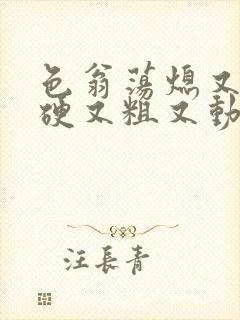 色翁荡熄又
硬又粗又動
汪長青